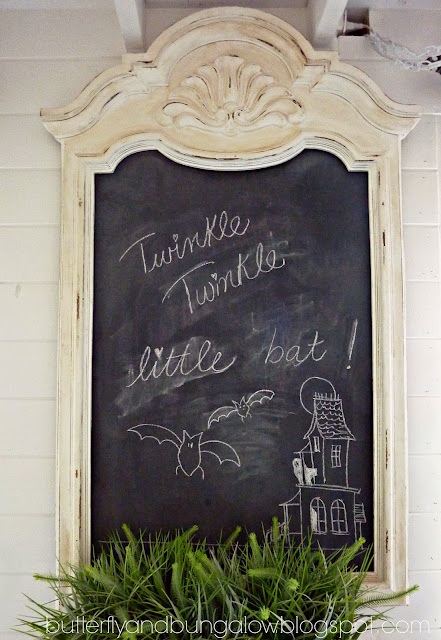 Twinkle
Twinkle
little bat !
butterflyandbungalow.blogspot.com